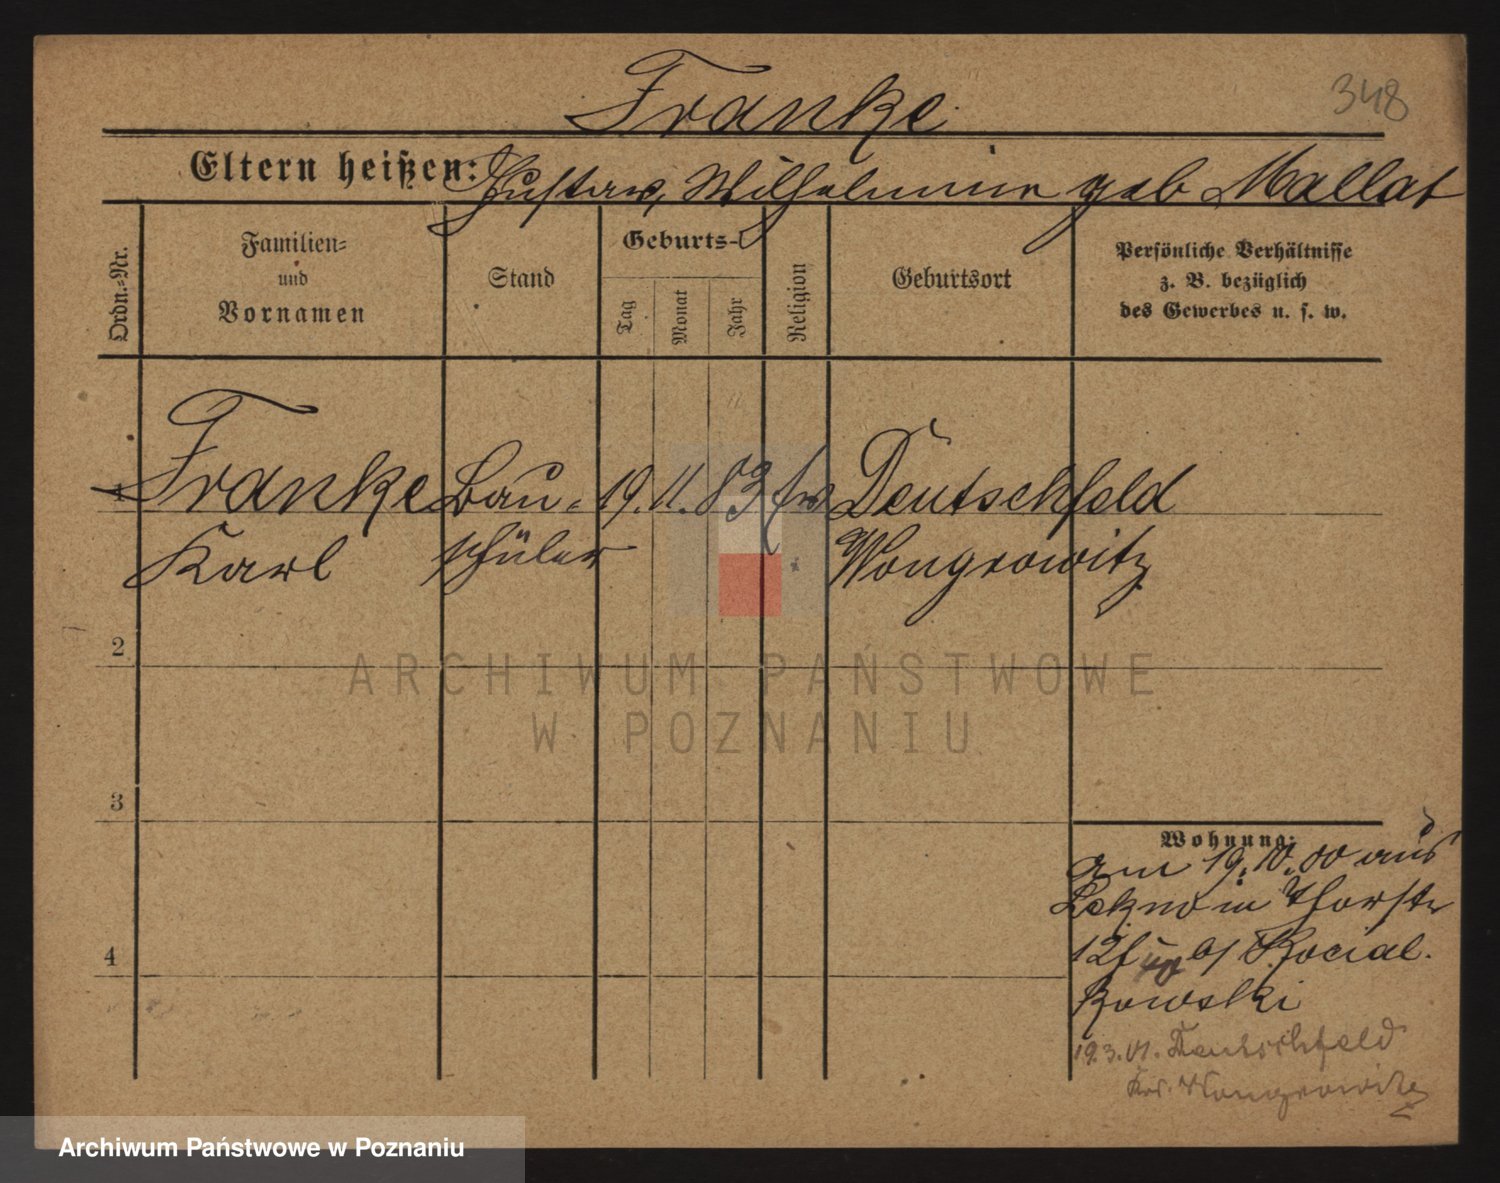 348
Franke
Eltern heißen: Gustav, Wilhelmine geb Mallat
Ordn.=Nr.
Familien=
und
Vornamen
Stand
Geburts-
Tag
Monat
Jahr
Religion
Geburtsort
Persönliche Verhältnisse
z. B. bezüglich
des Gewerbes u. s. w.
1 Franke Bau= 19. 11. 83 ev Deutschfeld
Karl schüler Wongrowitz
2
3
4
Wohnung:
am 19.10.00 aus
Lekno in Thorstr
12 b/ Kocial.
kowski
19.3.01. Deutschfeld
Kr. Wongrowitz
ARCHIWUM PAŃSTWOWE
W POZNANIU
Archiwum Państwowe w Poznaniu